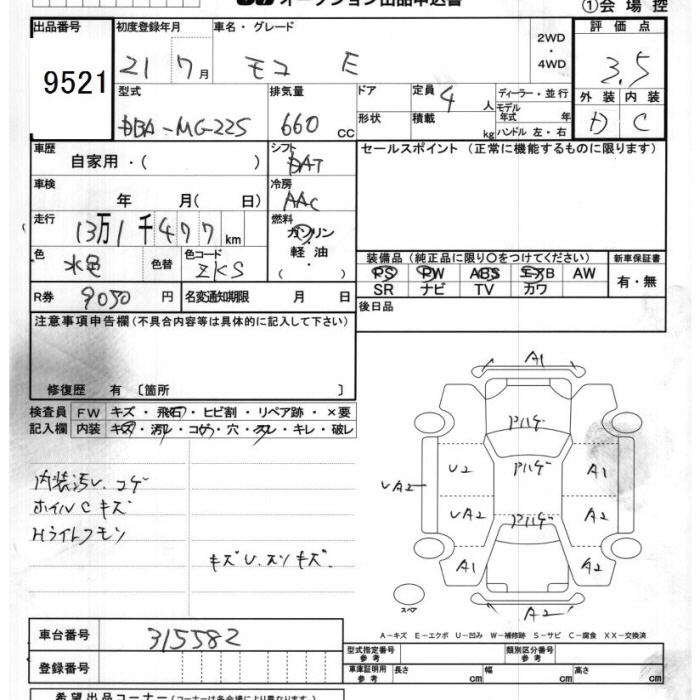 オークション出品申込書
①会場控
出品番号 9521
初度登録年月 21 7月
車名・グレード モコ E
2WD
4WD
評価点 3.5
外装 D 内装 C
型式 DBA-MG22S
排気量 660 CC
ドア
形状
定員 4 人
積載 kg
ディーラー・並行
モデル年式 年
ハンドル 左・右
車歴 自家用・( )
シフト DAT
セールスポイント (正常に機能するものに限ります)
車検 年 月( 日)
冷房 AAC
走行 13万1千477km
燃料 ガソリン・軽油・( )
色 水色 色替
色コード ZKS
装備品(純正品に限り○をつけてください)
PS PW ABS エアB AW
SR ナビ TV カワ
新車保証書 有・無
R券 9050円
名変通知期限 月 日
後日品
注意事項申告欄(不具合内容等は具体的に記入して下さい)
修復歴 有 〔箇所 〕
検査員記入欄
FW キズ・飛石・ヒビ割・リペア跡・×要
内装 キズ・汚レ・コゲ・穴・スレ・キレ・破レ
内装汚レ.コゲ
ホイルCキズ
Hライトクモリ
キズU.スリキズ.
A1
U2
A1
UA2
UA2
A2
A1
A2
A2
スペア
A-キズ E-エクボ U-凹み W-補修跡 S-サビ C-腐食 XX-交換済
車台番号 315582
登録番号
型式指定番号 参考
類別区分番号 参考
車庫証明用 参考 長さ cm 幅 cm 高さ cm
希望出品コーナー(コーナーは各会場により異なります)